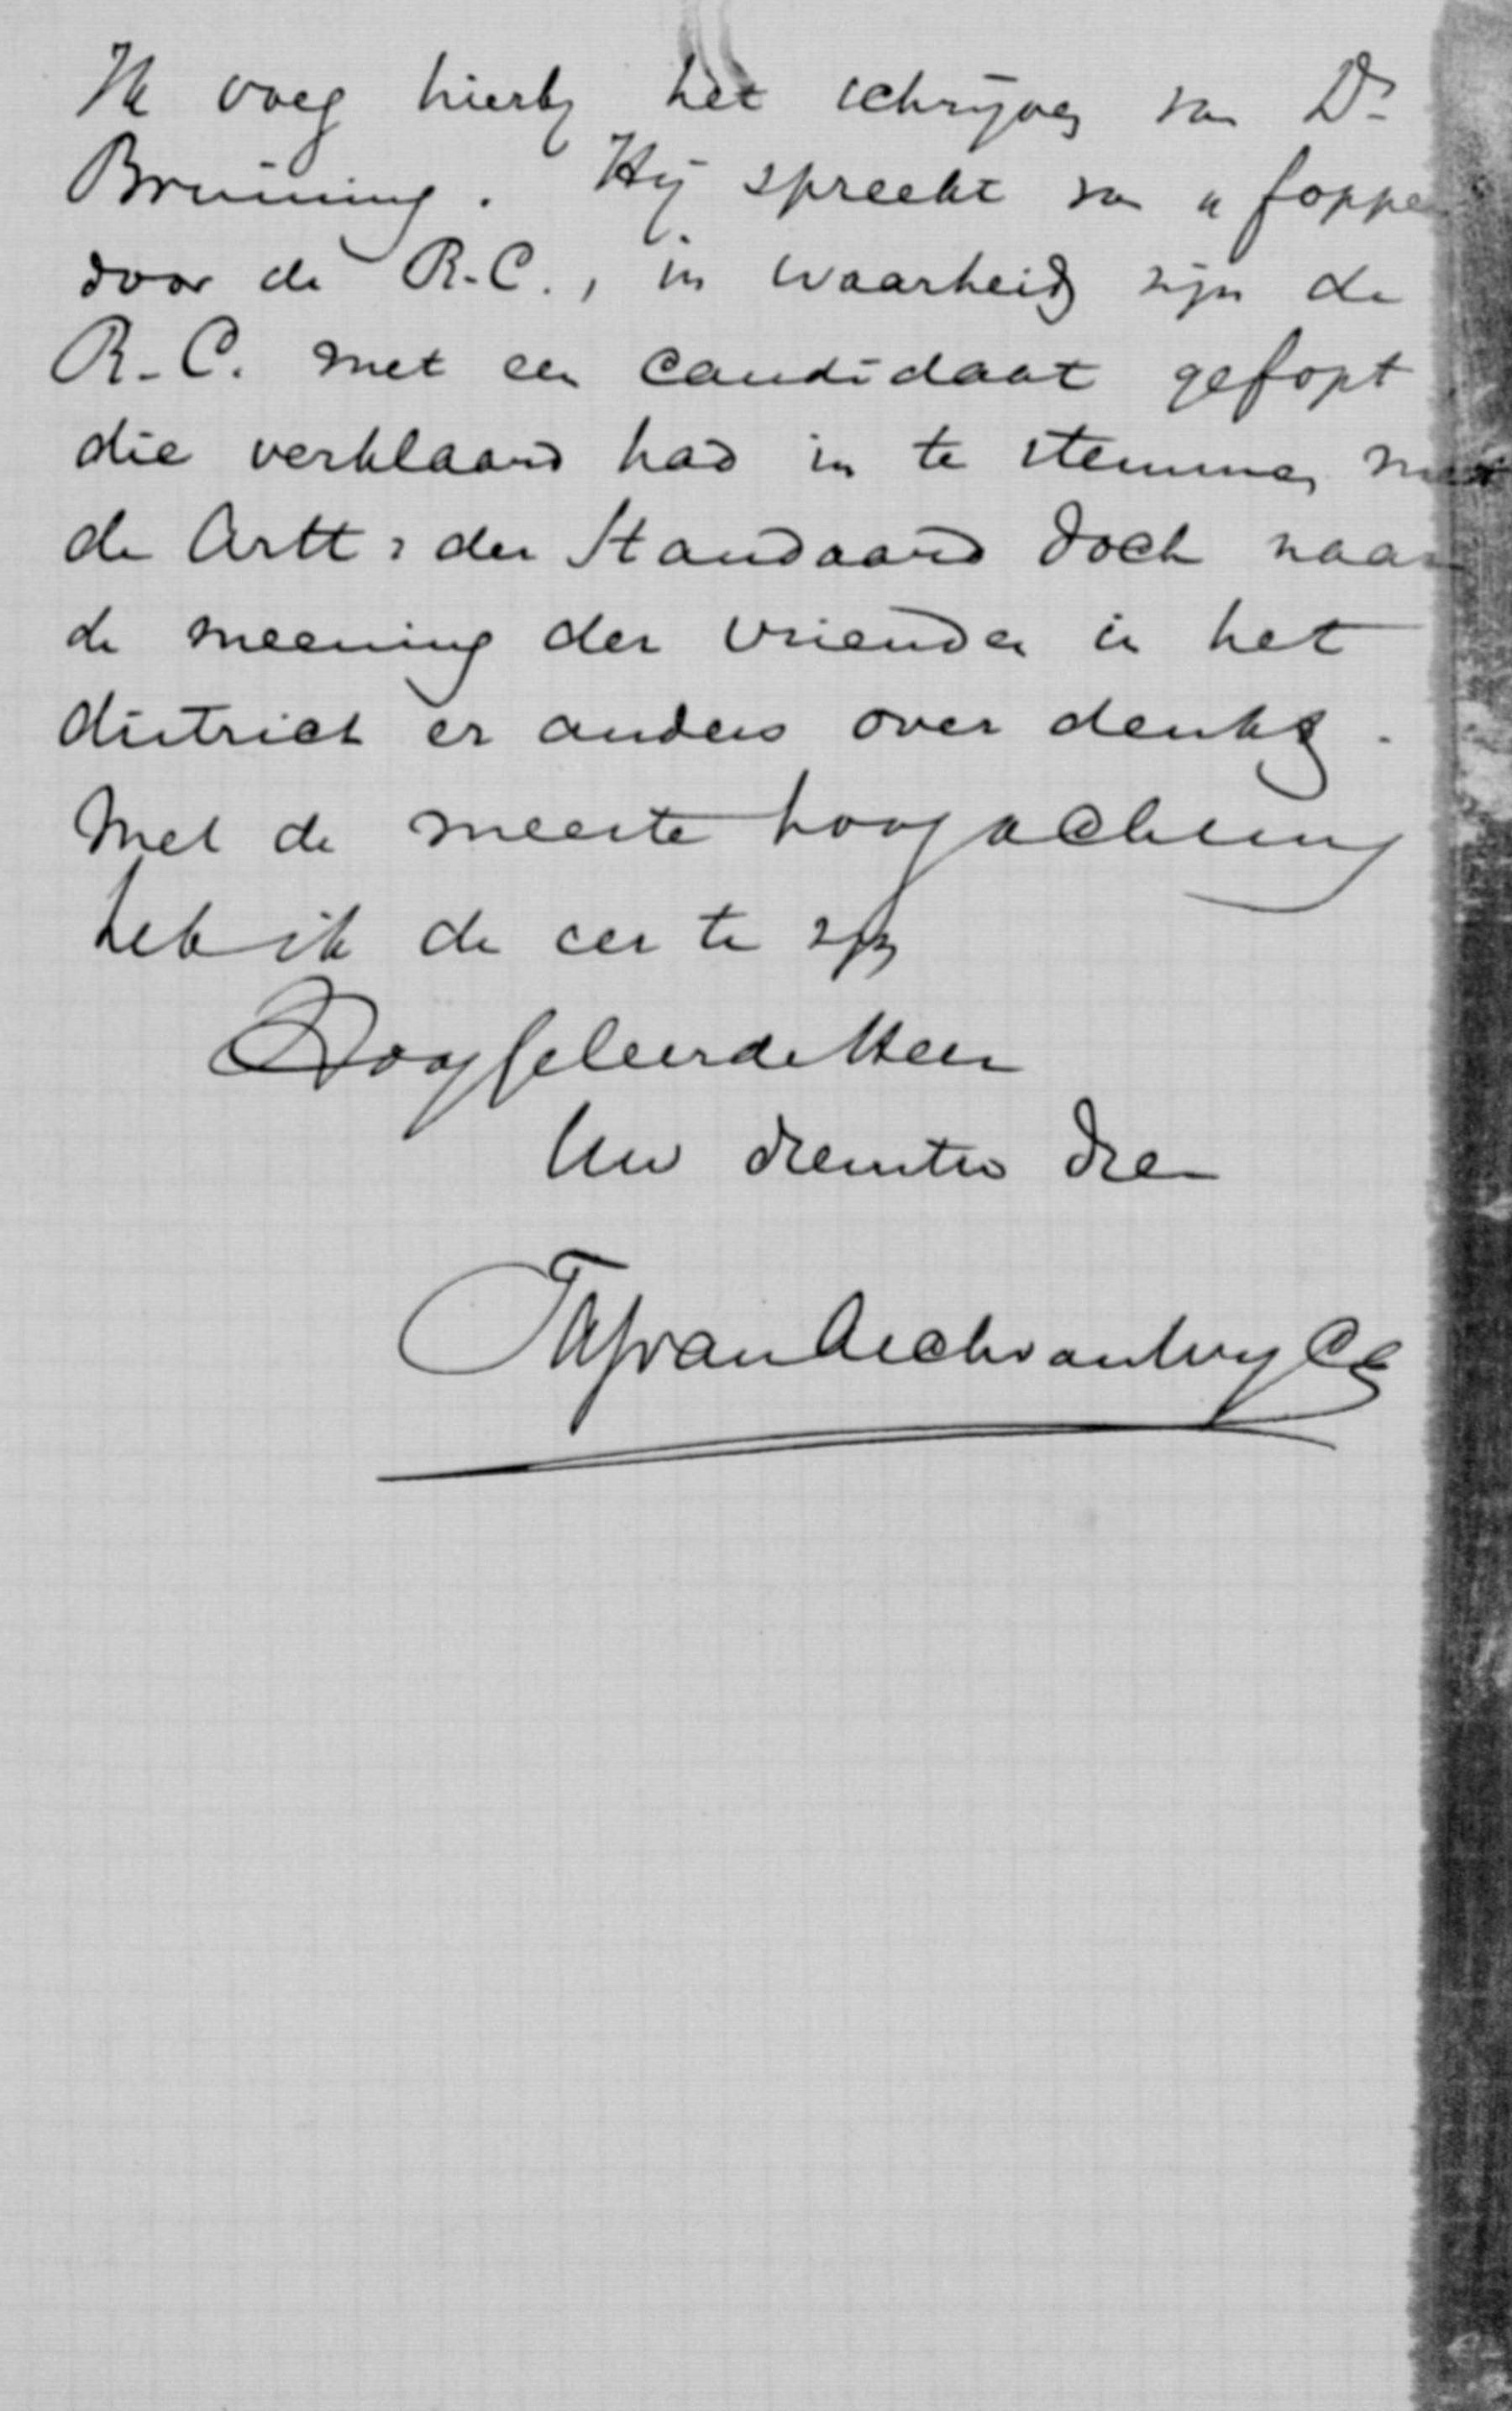 Ik voeg hierbij het schrijven van Dr
Bruining. Hij spreekt van "foppen
door de R.C., in waarheid zijn de
R.C. met een candidaat gefopt
die verklaard had in te stemmen met
de Artt: der Standaard doch naar
de meening der vrienden in het
district er anders over denkt.
Met de meeste hoogachting
heb ik de eer te zijn
Hooggeleerde Heer
Uw dienstw dr
van Asch van Wyck